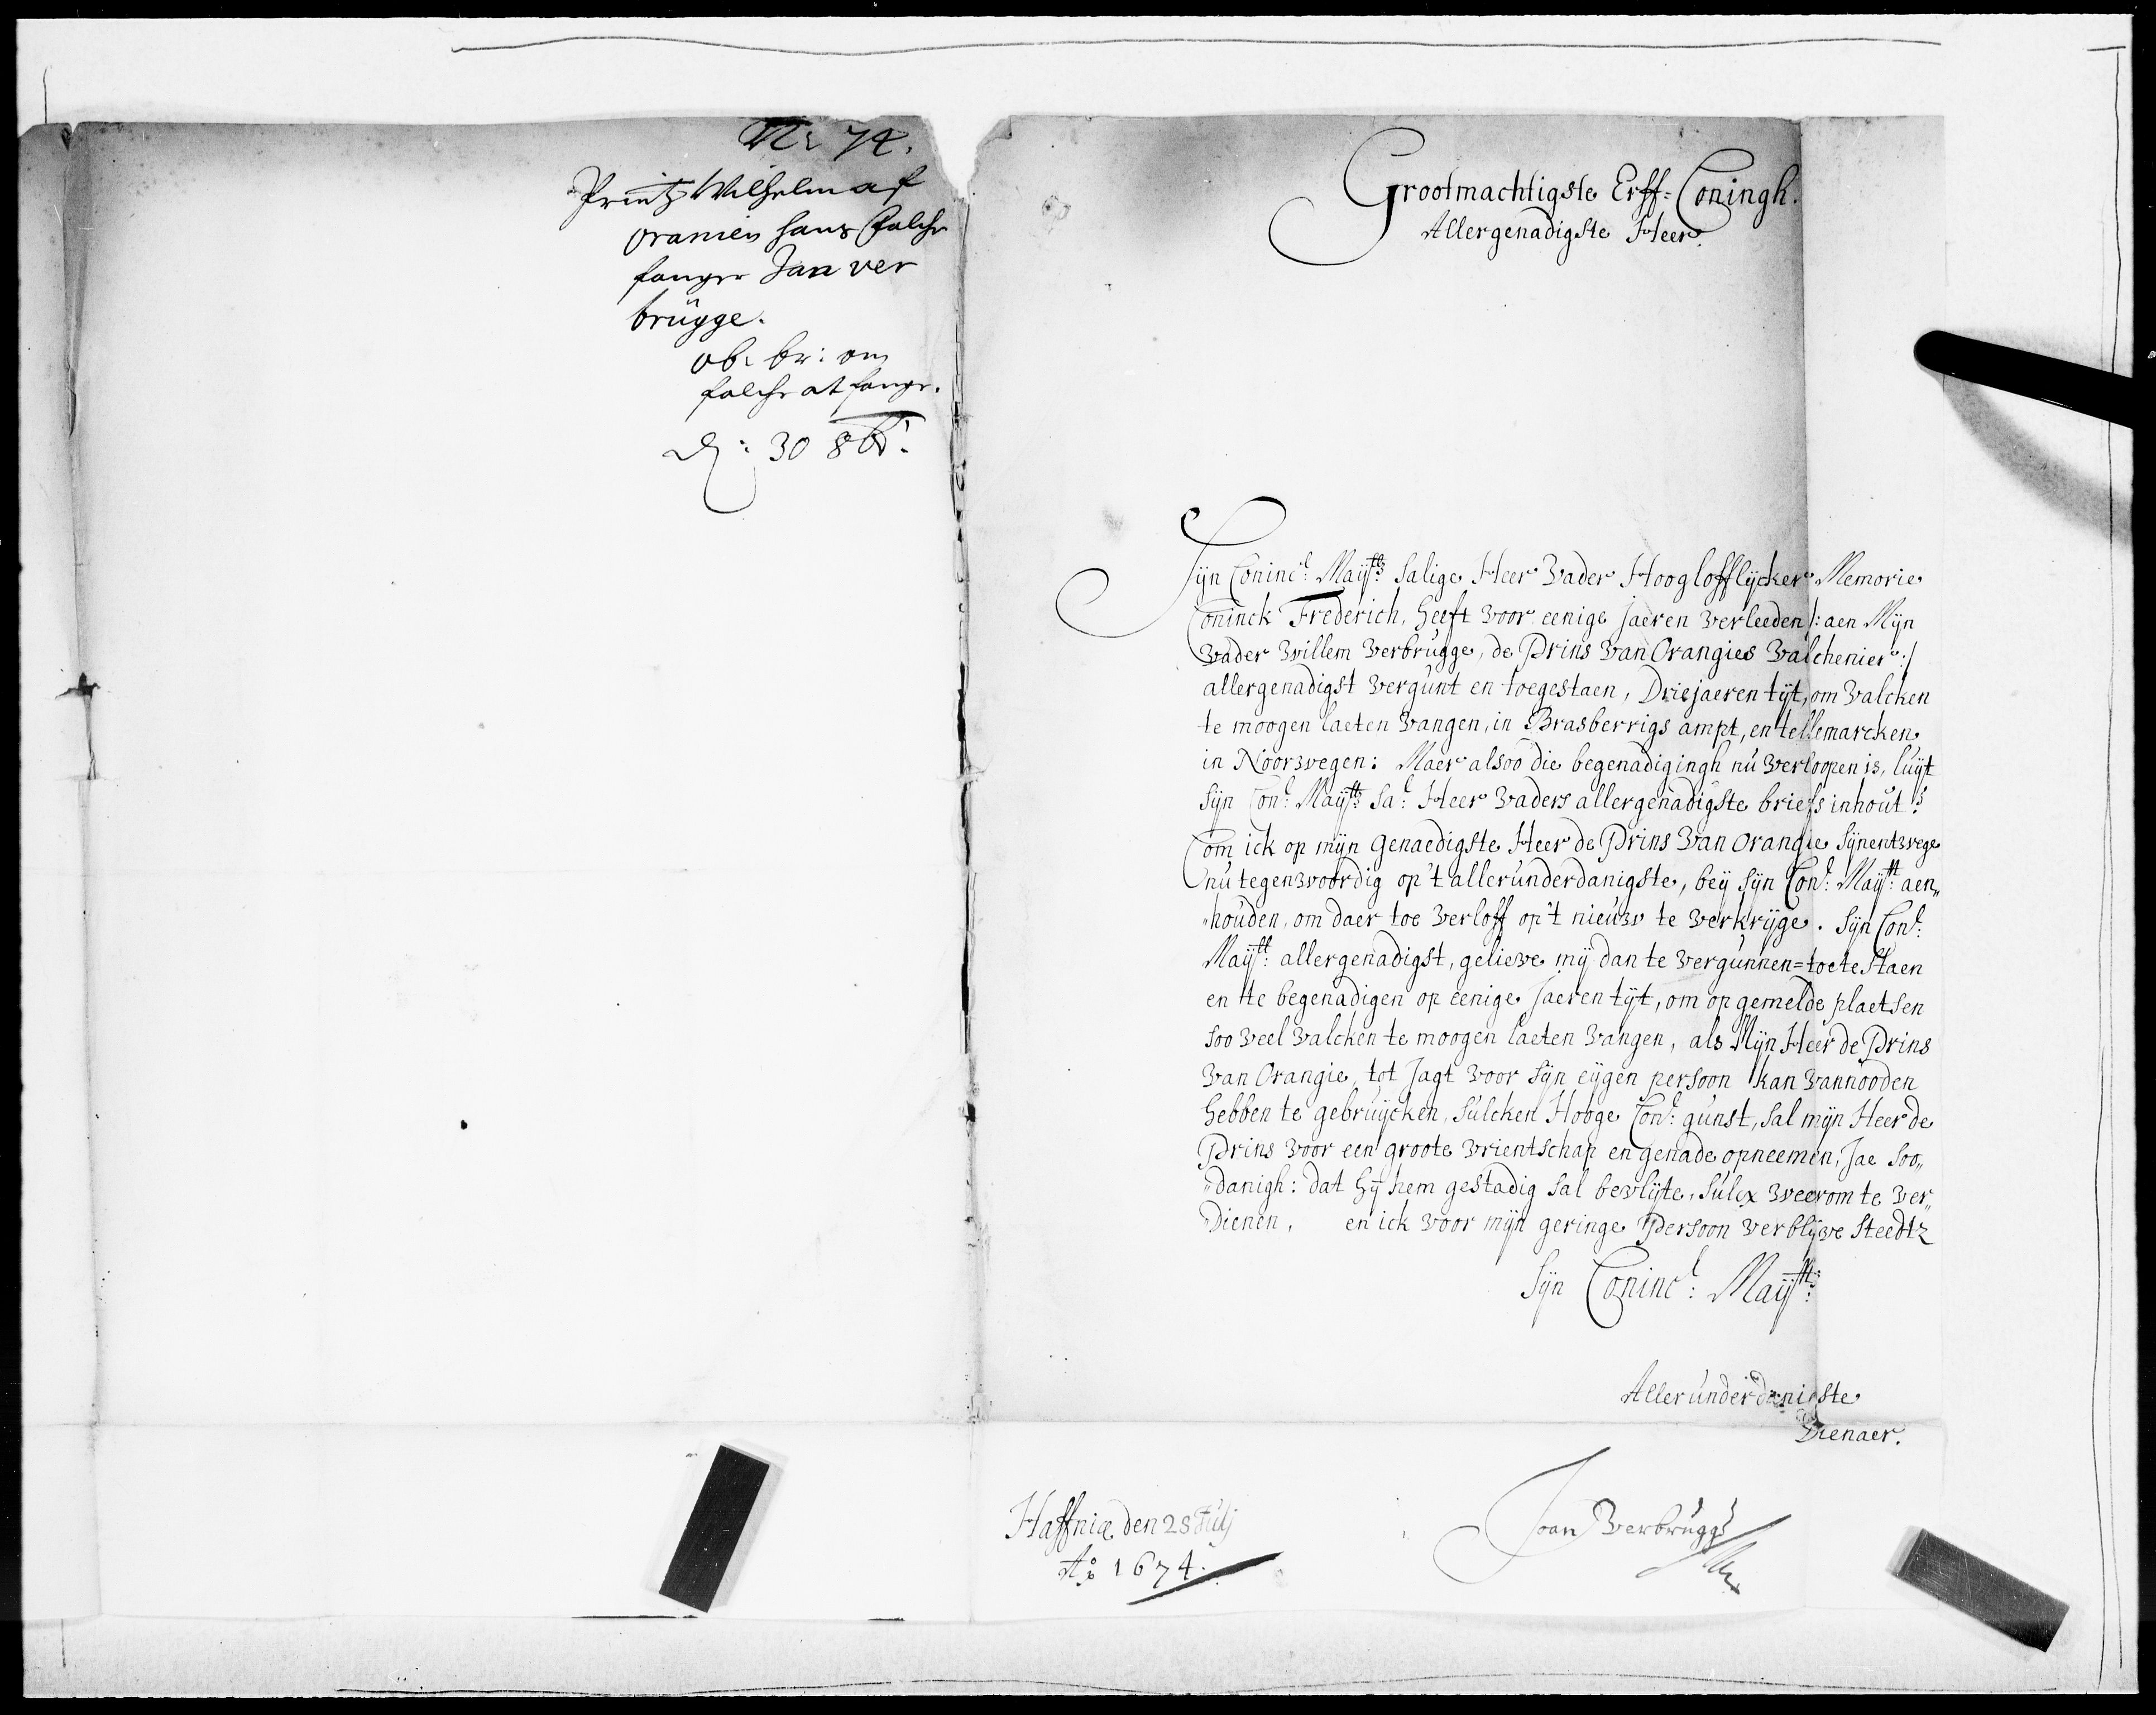 N: 74.
Printz Wilhelm af
oranien hans falche
fanger Jan ver
brügge.
ob: br: om
falche at fange.
d: 30 8br:
Grootmachtigste Erff-Coningh.
Allergenadigste Heer.
Sijn Conincl: Maijtts Salige Heer Vader Hooglofflijcker Memorie
Coninck Frederich, heeft voor eenige jaeren verleeden /: aen Mijn
Vader Willem Verbrugge, de Prins van Orangies Valchenier :/
allergenadigst vergunt en toegestaen, Driejaeren tijt, om Valcken
te moogen laeten vangen, in Brasberrigs ampt, en tellemarcken
in Noorwegen: Maer alsoo die begenadigingh nu verloopen is, luijt
Sijn Conl: Maijtts Sal: Heer Vaders allergenadigste briefs inhout:
Com ick op mijn Genaedigste Heer de Prins van Orangie Sijnentwege
nu tegenwoordig op't allerunderdanigste, beij sijn Conl: Maijtt: aen„
„houden, om daer toe verloff op't nieuw te verkrijge. Sijn Conl:
Maijtt: allergenadigst, gelieve mij dan te vergunnen=toete Staen
en te begenadigen op eenige Jaeren tijt, om op gemelde plaetsen
soo veel valcken te moogen laeten vangen, als Mijn Heer de Prins
van Orangie, tot Jagt voor sijn eijgen persoon kan vannooden
hebben te gebruijcken, Sulcken Hooge Conl: gunst, sal mijn Heer de
Prins voor een groote vrientschap en genade opneemen, Jae soo„
„danigh: dat hij hem gestadig sal bevlijte, sulex weerom te ver„
Dienen, en ick voor mijn geringe Persoon verblijve Steedtz
Sijn Conincl: Maijtts:
Allerunderdanigste
Dienaer.
Haffniæ den 28 Julj
Ao: 1674.
Joan Verbrugge